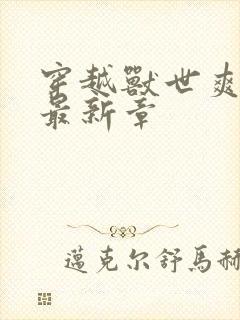 穿越獸世爽
最新章
邁克尔舒馬赫